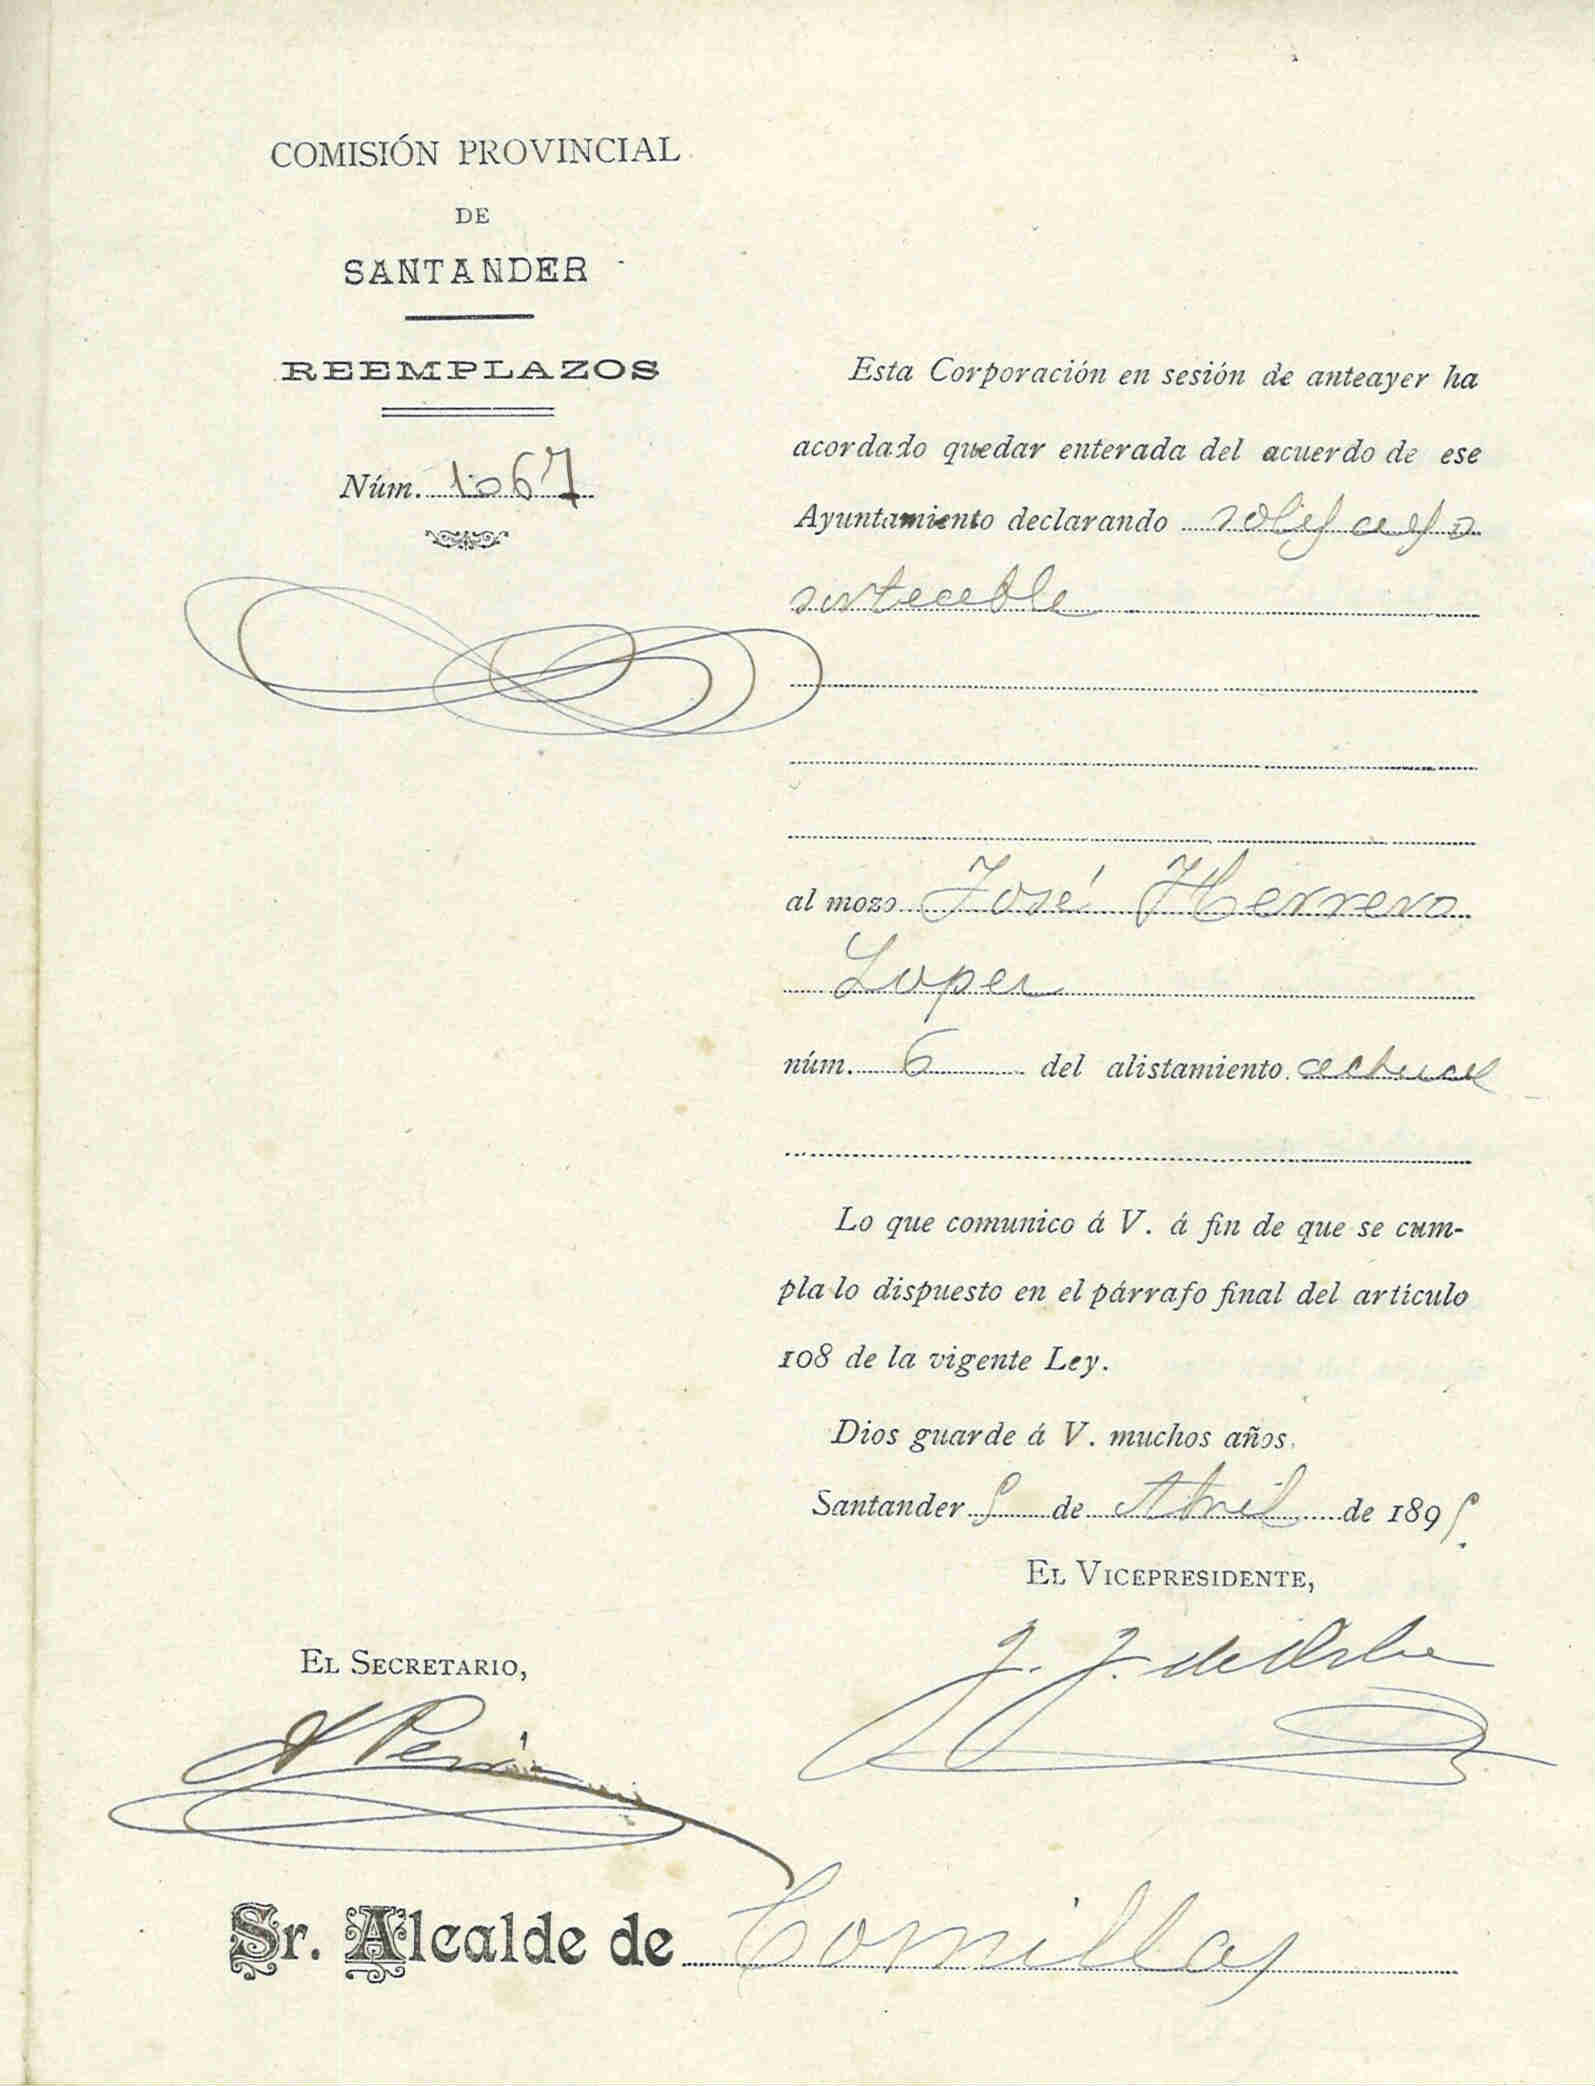 COMISIÓN PROVINCIAL
DE
SANTANDER
REEMPLAZOS
Núm. 1067
Esta Corporación en sesión de anteayer ha
acordado quedar enterada del acuerdo de ese
Ayuntamiento declarando
sorteable
al mozo José Herrero
Lopez
núm. 6 del alistamiento actual
Lo que comunico á V. á fin de que se cum-
pla lo dispuesto en el párrafo final del artículo
108 de la vigente Ley.
Dios guarde á V. muchos años.
Santander 5 de Abril de 1895.
EL VICEPRESIDENTE,
J. J. de
EL SECRETARIO,
A
Sr. Alcalde de Comillas